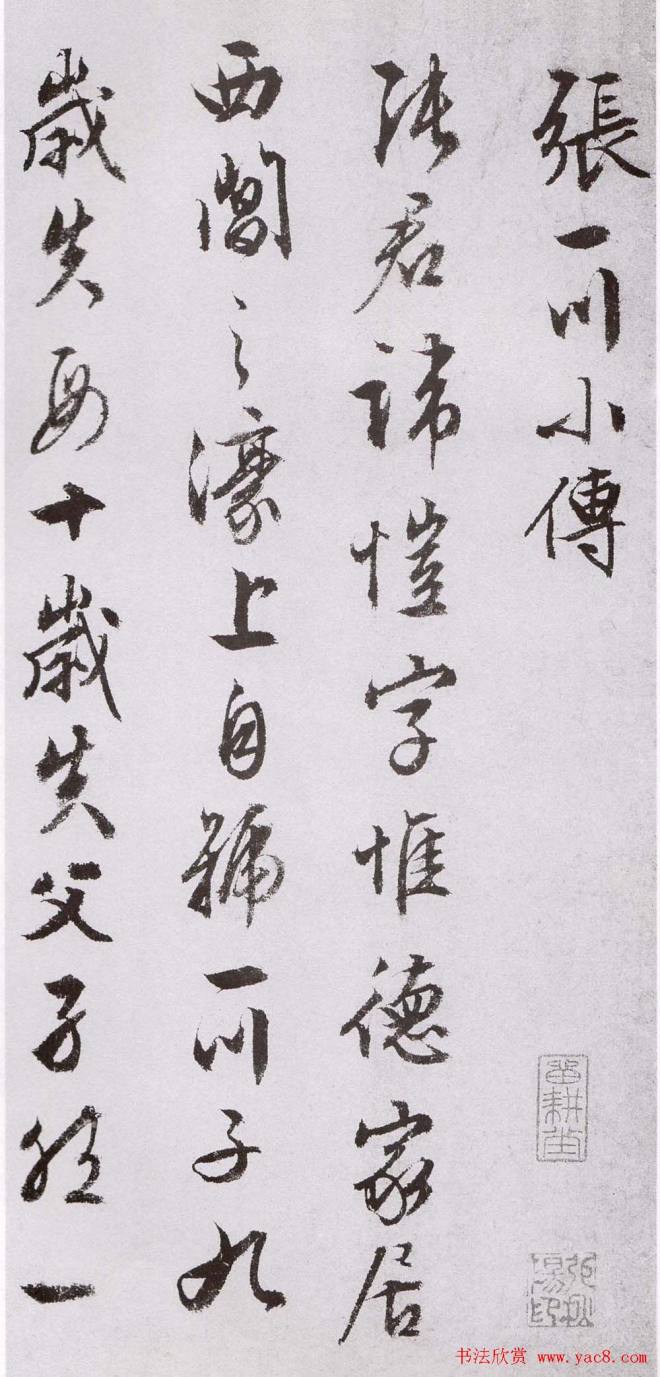 張一川小傳
張君諱愷字惟德家居
西閶之濠上自號一川子九
歲失母十歲失父孑然一
留耕堂
书法欣赏 www.yac8.com